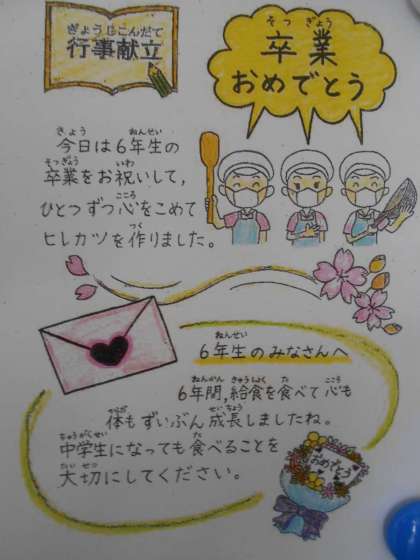 ぎょうじこんだて
行事献立
そつ ぎょう
卒業
おめでとう
きょう ねんせい
今日は6年生の
そつぎょう いわ
卒業をお祝いして、
こころ
ひとつずつ心をこめて
つく
ヒレカツを作りました。
ねんせい
6年生のみなさんへ
ねんかん きゅうしょく た こころ
6年間,給食を食べて心も
からだ せいちょう
体もずいぶん成長しましたね。
ちゅうがくせい た
中学生になっても食べることを
たいせつ
大切にしてください。
おめでとう